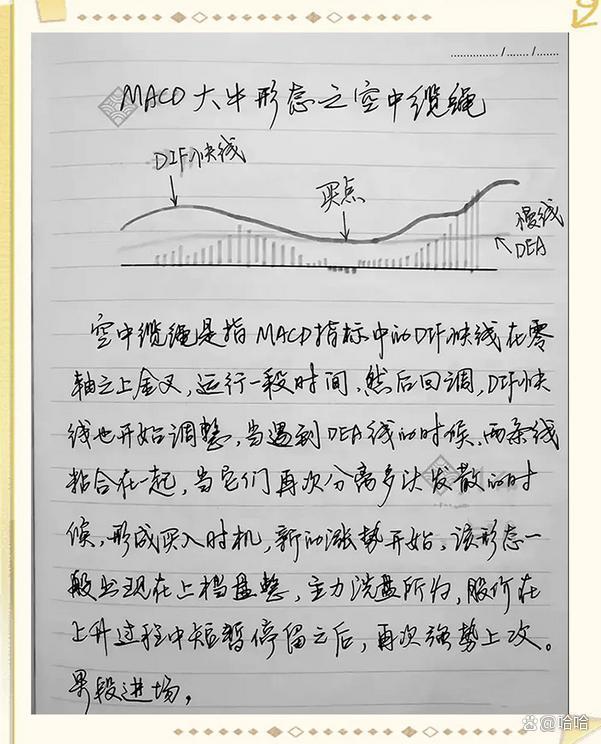 MACD大牛形态之空中缆绳
DIF快线
买点
慢线
DEA
空中缆绳是指MACD指标中的DIF快线在零
轴之上金叉，运行一段时间，然后回调，DIF快
线也开始调整，当遇到DEA线的时候，两条线
粘合在一起，当它们再次分离多头发散的时
候，形成买入时机，新的涨势开始。该形态一
般出现在上档盘整，主力洗盘所为，股价在
上升过程中短暂停留之后，再次强势上攻。
果段进场，
@哈哈